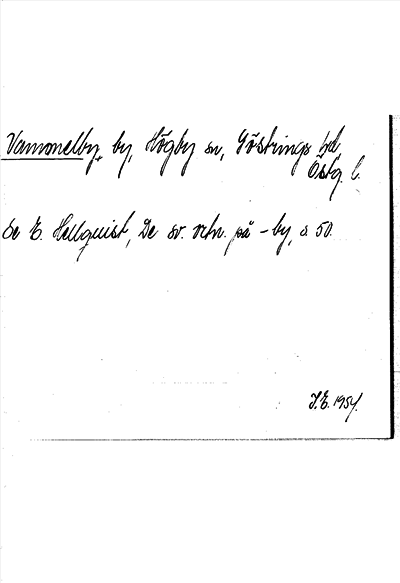 Vammelby, by, Högby sn, Göstrings hd
Östg. l.
Se E. Hellquist, De sv. ortn. på -by, s. 50.
J.E. 1954.